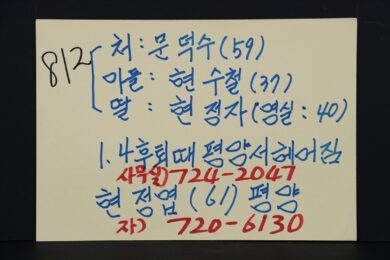 812
처: 문덕수(59)
아들: 현수철(37)
딸: 현정자(영실: 40)
1.4후퇴때 평양서헤어짐
사무실) 724-2047
현정엽(61) 평양
자) 720-6130